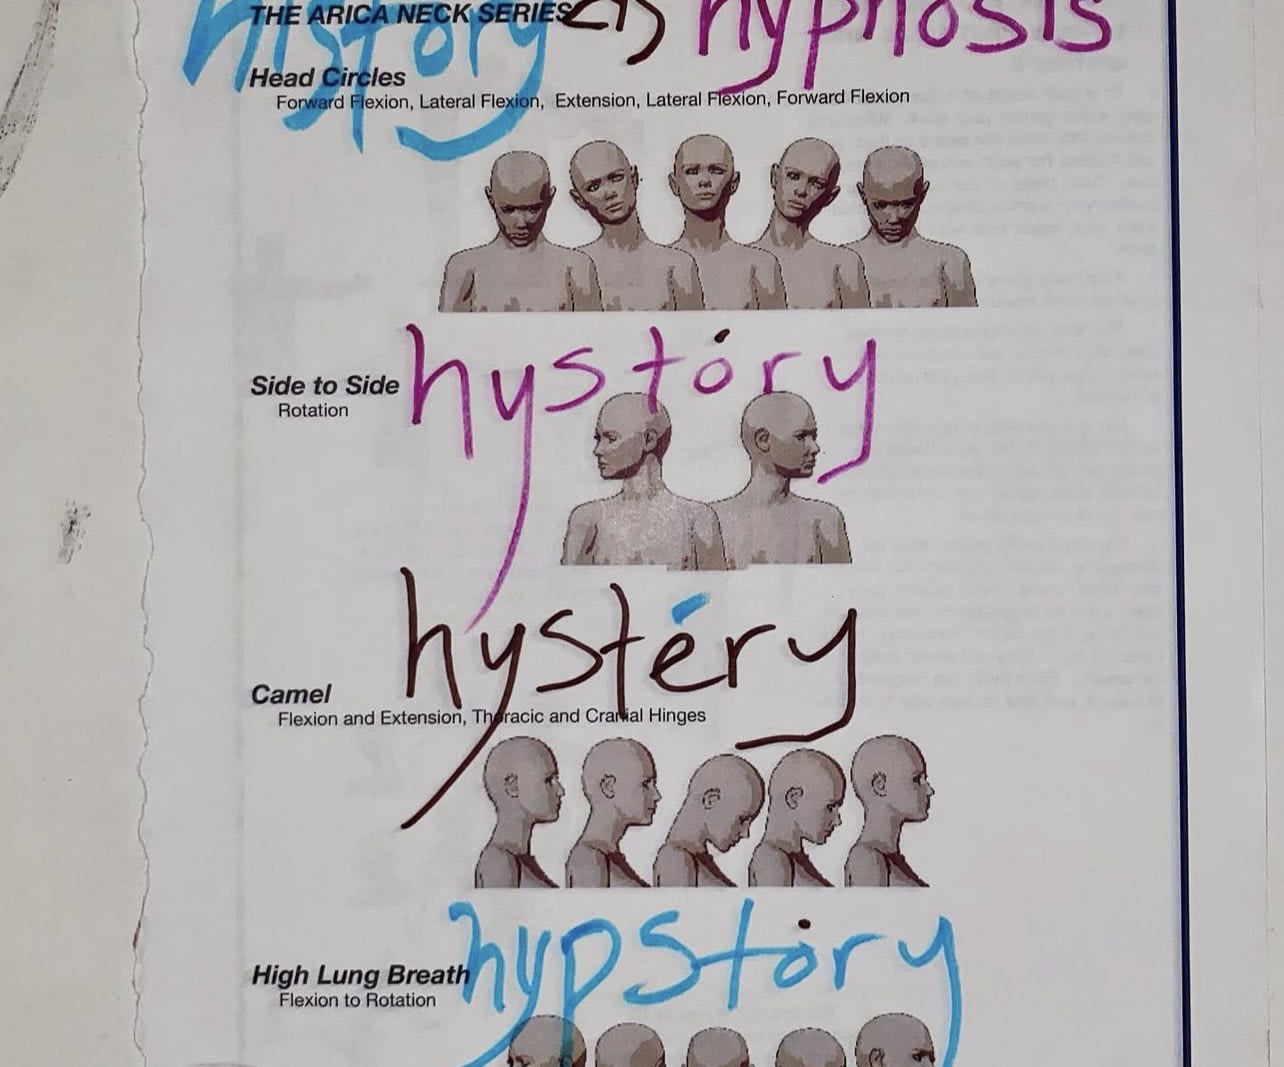 THE ARICA NECK SERIES
history as hypnosis
Head Circles
Forward Flexion, Lateral Flexion, Extension, Lateral Flexion, Forward Flexion
hystóry
Side to Side
Rotation
hystéry
Camel
Flexion and Extension, Thoracic and Cranial Hinges
hypstóry
High Lung Breath
Flexion to Rotation